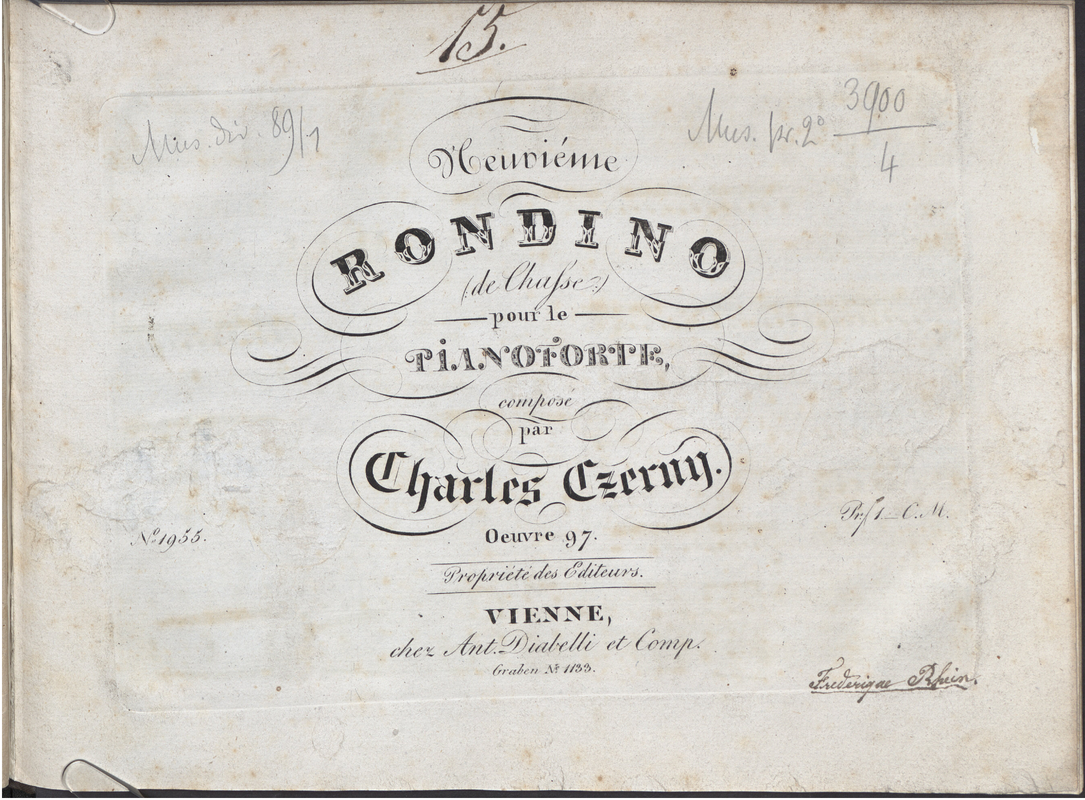 15.
Mus. div. 89/1
Mus. pr. 2° 3900
4
Neuviéme
RONDINO
(de Chaſse)
pour le
PIANOFORTE,
composé
par
Charles Czerny.
Oeuvre 97.
No. 1955.
Pr. f 1_ C.M.
Propriété des Editeurs.
VIENNE,
chez Ant. Diabelli et Comp.
Graben No. 1133.
Frederique Rhein.